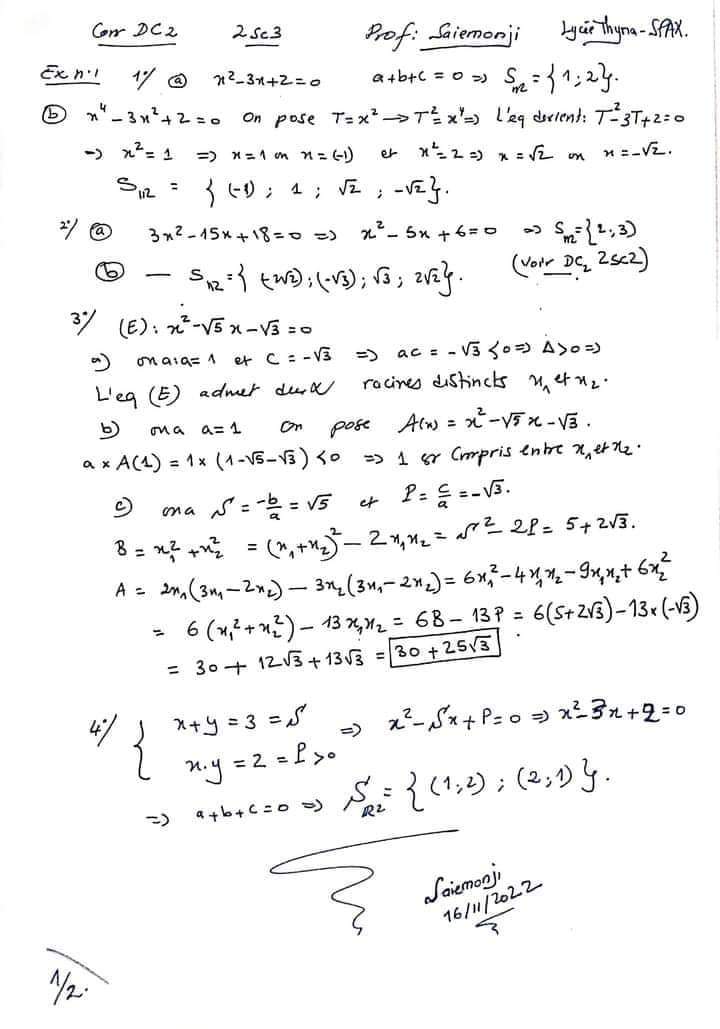 Corr DC2 2Sc3 Prof: Saiemonji Lycée Thyna-SFAX.
Ex n°1 1°/ ⓐ x²-3x+2=0 a+b+c=0 ⇒ S_IR = {1;2}.
ⓑ x⁴-3x²+2=0 On pose T=x² → T²=x⁴ ⇒ l'eq devient: T²-3T+2=0
→ x²=1 ⇒ x=1 ou x=(-1) et x²=2 ⇒ x=√2 ou x=-√2.
S_IR = {(-1); 1; √2; -√2}.
2°/ ⓐ 3x²-15x+18=0 ⇒ x²-5x+6=0 ⇒ S_IR={2;3}
ⓑ — S_IR={(-2√2);(-√3);√3;2√2}. (Voir DC₂ 2Sc2)
3°/ (E): x²-√5x-√3=0
a) on a: a=1 et c=-√3 ⇒ ac=-√3<0 ⇒ Δ>0 ⇒
L'eq (E) admet deux racines distincts x₁ et x₂.
b) on a a=1 on pose A(x)=x²-√5x-√3.
a×A(1)=1×(1-√5-√3)<0 ⇒ 1 est compris entre x₁ et x₂.
c) on a S=-b/a=√5 et P=c/a=-√3.
B=x₁²+x₂²=(x₁+x₂)²-2x₁x₂=S²-2P=5+2√3.
A=2x₁(3x₁-2x₂)-3x₂(3x₁-2x₂)=6x₁²-4x₁x₂-9x₁x₂+6x₂²
=6(x₁²+x₂²)-13x₁x₂=6B-13P=6(5+2√3)-13×(-√3)
=30+12√3+13√3=30+25√3
4°/ { x+y=3=S ⇒ x²-Sx+P=0 ⇒ x²-3x+2=0
x.y=2=P>0
⇒ a+b+c=0 ⇒ S_IR²={(1;2);(2;1)}.
Saiemonji
16/11/2022
1/2.